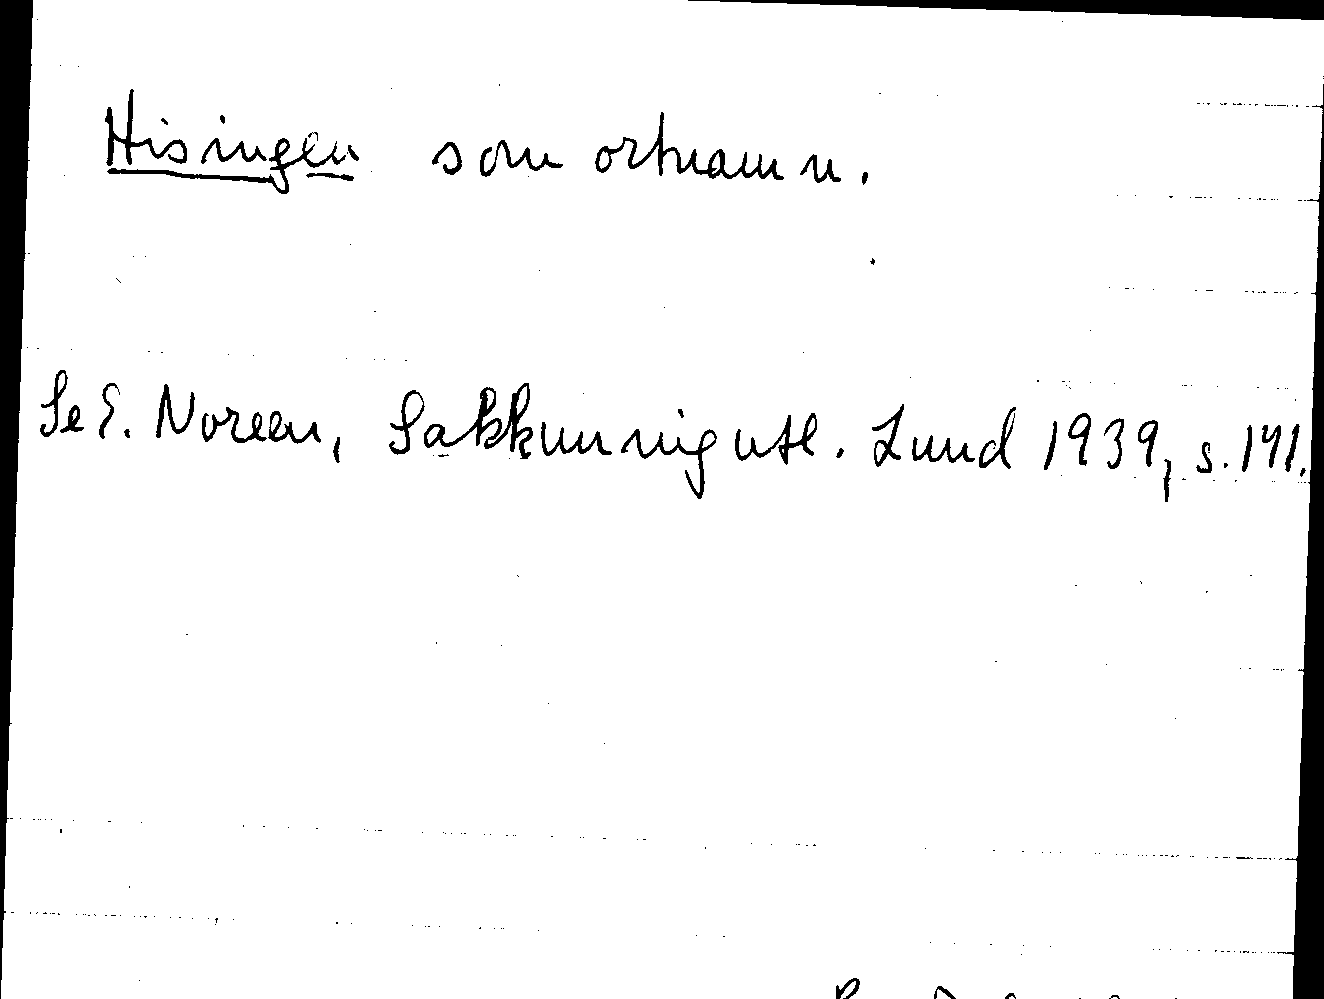 Hisingen som ortnamn.
Se E. Noreen, Sakkunnigutl. Lund 1939, s. 141.